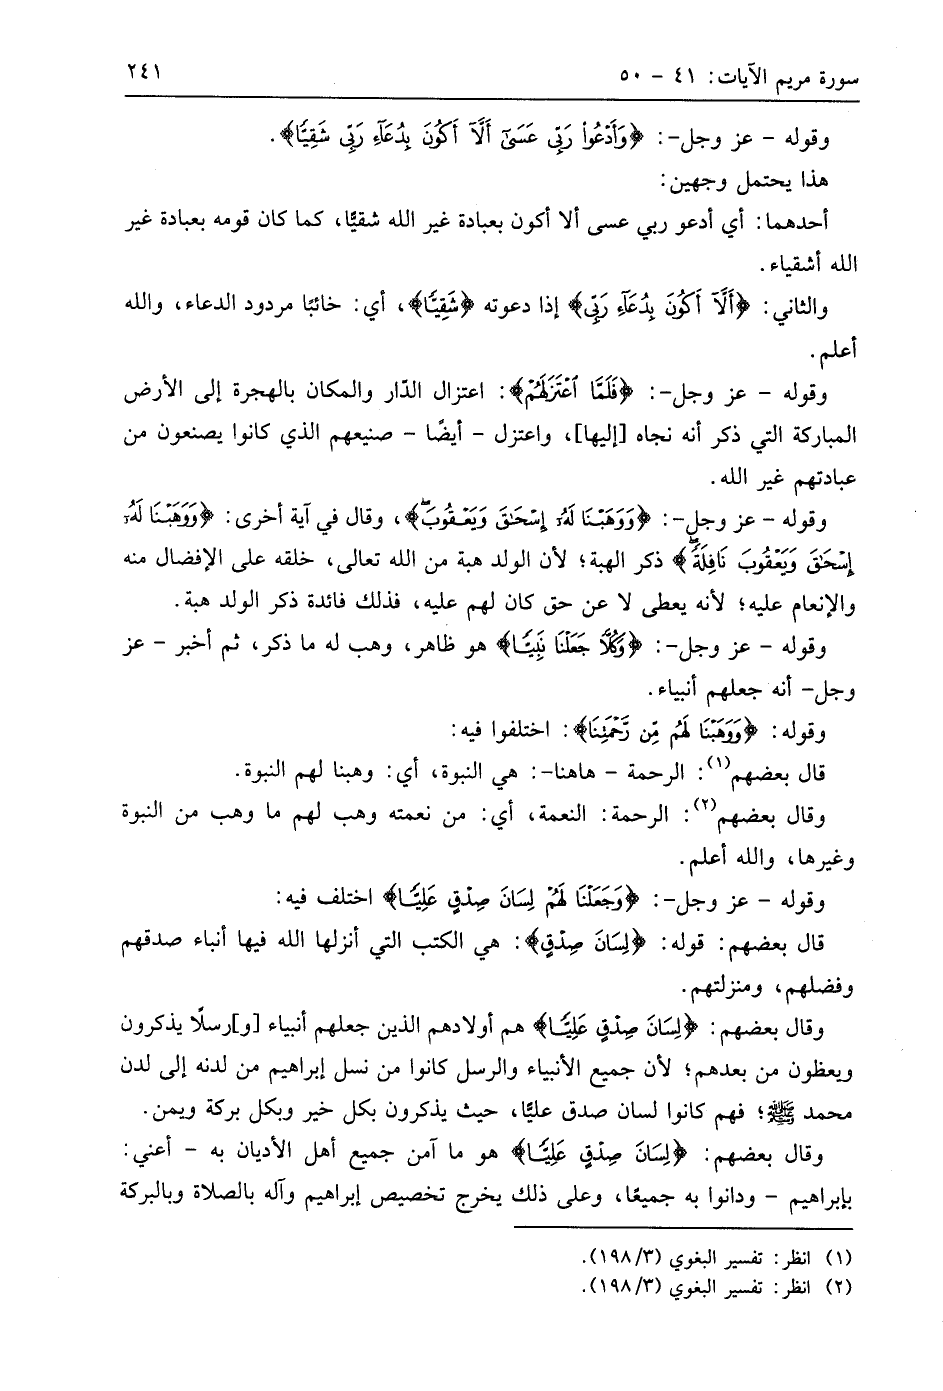 سورة مريم الآيات: ٤١ - ٥٠
٢٤١
وقوله - عز وجل-: ﴿وَأَدْعُواْ رَبِّي عَسَىٰٓ أَلَّآ أَكُونَ بِدُعَآءِ رَبِّي شَقِيًّا﴾.
هذا يحتمل وجهين:
أحدهما: أي أدعو ربي عسى ألا أكون بعبادة غير الله شقيًّا، كما كان قومه بعبادة غير
الله أشقياء.
والثاني: ﴿أَلَّآ أَكُونَ بِدُعَآءِ رَبِّي﴾ إذا دعوته ﴿شَقِيًّا﴾، أي: خائبًا مردود الدعاء، والله
أعلم.
وقوله - عز وجل-: ﴿فَلَمَّا ٱعْتَزَلَهُمْ﴾: اعتزال الدّار والمكان بالهجرة إلى الأرض
المباركة التي ذكر أنه نجاه [إليها]، واعتزل - أيضًا - صنيعهم الذي كانوا يصنعون من
عبادتهم غير الله.
وقوله - عز وجل-: ﴿وَوَهَبْنَا لَهُۥٓ إِسْحَٰقَ وَيَعْقُوبَۖ﴾، وقال في آية أخرى: ﴿وَوَهَبْنَا لَهُۥٓ
إِسْحَٰقَ وَيَعْقُوبَ نَافِلَةًۖ﴾ ذكر الهبة؛ لأن الولد هبة من الله تعالى، خلقه على الإفضال منه
والإنعام عليه؛ لأنه يعطى لا عن حق كان لهم عليه، فذلك فائدة ذكر الولد هبة.
وقوله - عز وجل-: ﴿وَكُلًّا جَعَلْنَا نَبِيًّا﴾ هو ظاهر، وهب له ما ذكر، ثم أخبر - عز
وجل- أنه جعلهم أنبياء.
وقوله: ﴿وَوَهَبْنَا لَهُم مِّن رَّحْمَتِنَا﴾: اختلفوا فيه:
قال بعضهم(١): الرحمة - هاهنا-: هي النبوة، أي: وهبنا لهم النبوة.
وقال بعضهم(٢): الرحمة: النعمة، أي: من نعمته وهب لهم ما وهب من النبوة
وغيرها، والله أعلم.
وقوله - عز وجل-: ﴿وَجَعَلْنَا لَهُمْ لِسَانَ صِدْقٍ عَلِيًّا﴾ اختلف فيه:
قال بعضهم: قوله: ﴿لِسَانَ صِدْقٍ﴾: هي الكتب التي أنزلها الله فيها أنباء صدقهم
وفضلهم، ومنزلتهم.
وقال بعضهم: ﴿لِسَانَ صِدْقٍ عَلِيًّا﴾ هم أولادهم الذين جعلهم أنبياء [و]رسلًا يذكرون
ويعظون من بعدهم؛ لأن جميع الأنبياء والرسل كانوا من نسل إبراهيم من لدنه إلى لدن
محمد ﷺ؛ فهم كانوا لسان صدق عليًّا، حيث يذكرون بكل خير وبكل بركة ويمن.
وقال بعضهم: ﴿لِسَانَ صِدْقٍ عَلِيًّا﴾ هو ما آمن جميع أهل الأديان به - أعني:
بإبراهيم - ودانوا به جميعًا، وعلى ذلك يخرج تخصيص إبراهيم وآله بالصلاة وبالبركة
(١) انظر: تفسير البغوي (٣/١٩٨).
(٢) انظر: تفسير البغوي (٣/١٩٨).